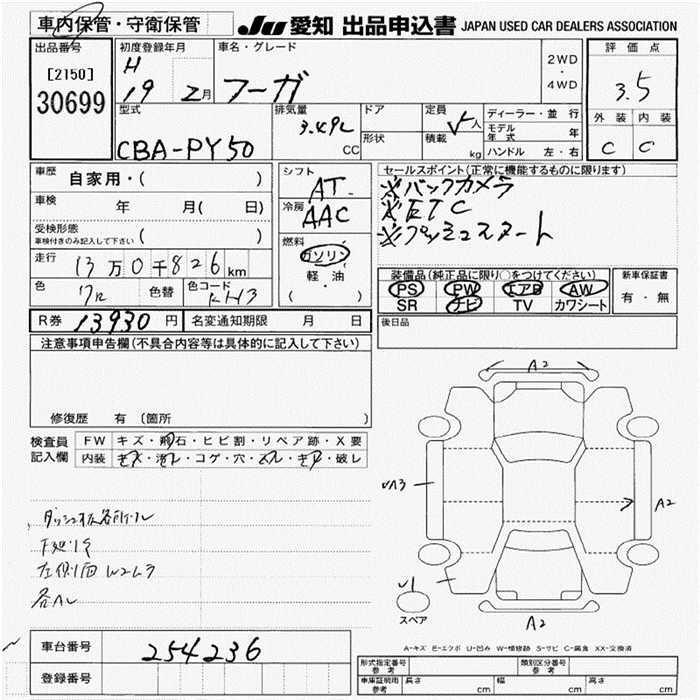 車内保管・守衛保管 JU 愛知 出品申込書 JAPAN USED CAR DEALERS ASSOCIATION
出品番号
[2150]
30699
初度登録年月
H
19 2月
車名・グレード
フーガ
2WD
・
4WD
評価点
3.5
外装 内装
C C
型式
CBA-PY50
排気量
3.49L
CC
ドア
形状
定員
5人
積載
kg
ディーラー・並行
モデル年式 年
ハンドル 左・右
車歴 自家用・( )
車検 年 月( 日)
受検形態
車検付きのみ記入して下さい ( )
走行 13万0千826km
色 クロ 色替 色コード KH3
シフト
AT
冷房
AAC
燃料
ガソリン
軽・油
( )
セールスポイント(正常に機能するものに限ります)
※バックカメラ
※ETC
※プッシュスタート
装備品(純正品に限り○をつけてください)
PS PW エアB AW
SR ナビ TV カワシート
新車保証書
有・無
R券 13930円 名変通知期限 月 日
後日品
注意事項申告欄(不具合内容等は具体的に記入して下さい)
修復歴 有 (箇所 )
検査員記入欄
FW キズ・飛石・ヒビ割・リペア跡・X要
内装 キズ・汚レ・コゲ・穴・スレ・キレ・破レ
A2
A3
A2
A2
スペア
A-キズ E-エクボ U-凹み W-補修跡 S-サビ C-腐食 XX-交換済
車台番号 254236
登録番号
形式指定番号 参考 類別区分番号 参考
車庫証明用 参考 長さ cm 幅 cm 高さ cm